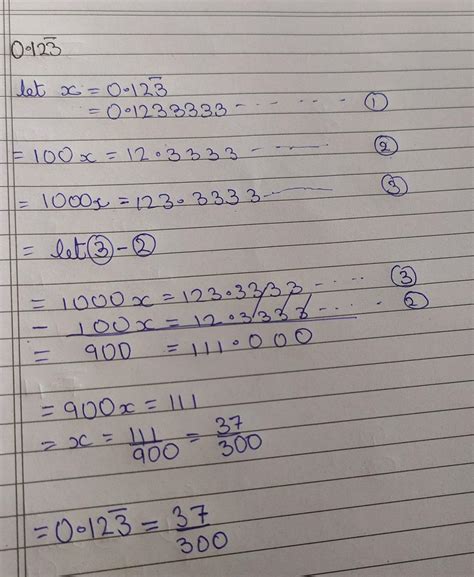 0.123̅
let x = 0.123̅
= 0.1233333 - - - - - - - ①
= 100x = 12.3333 - - - - ②
= 1000x = 123.3333 - - - - ③
= let ③ - ②
= 1000x = 123.3333 - - - - ③
- 100x = 12.3333 - - - - ②
= 900 = 111.000
= 900x = 111
= x = 111/900 = 37/300
= 0.123̅ = 37/300